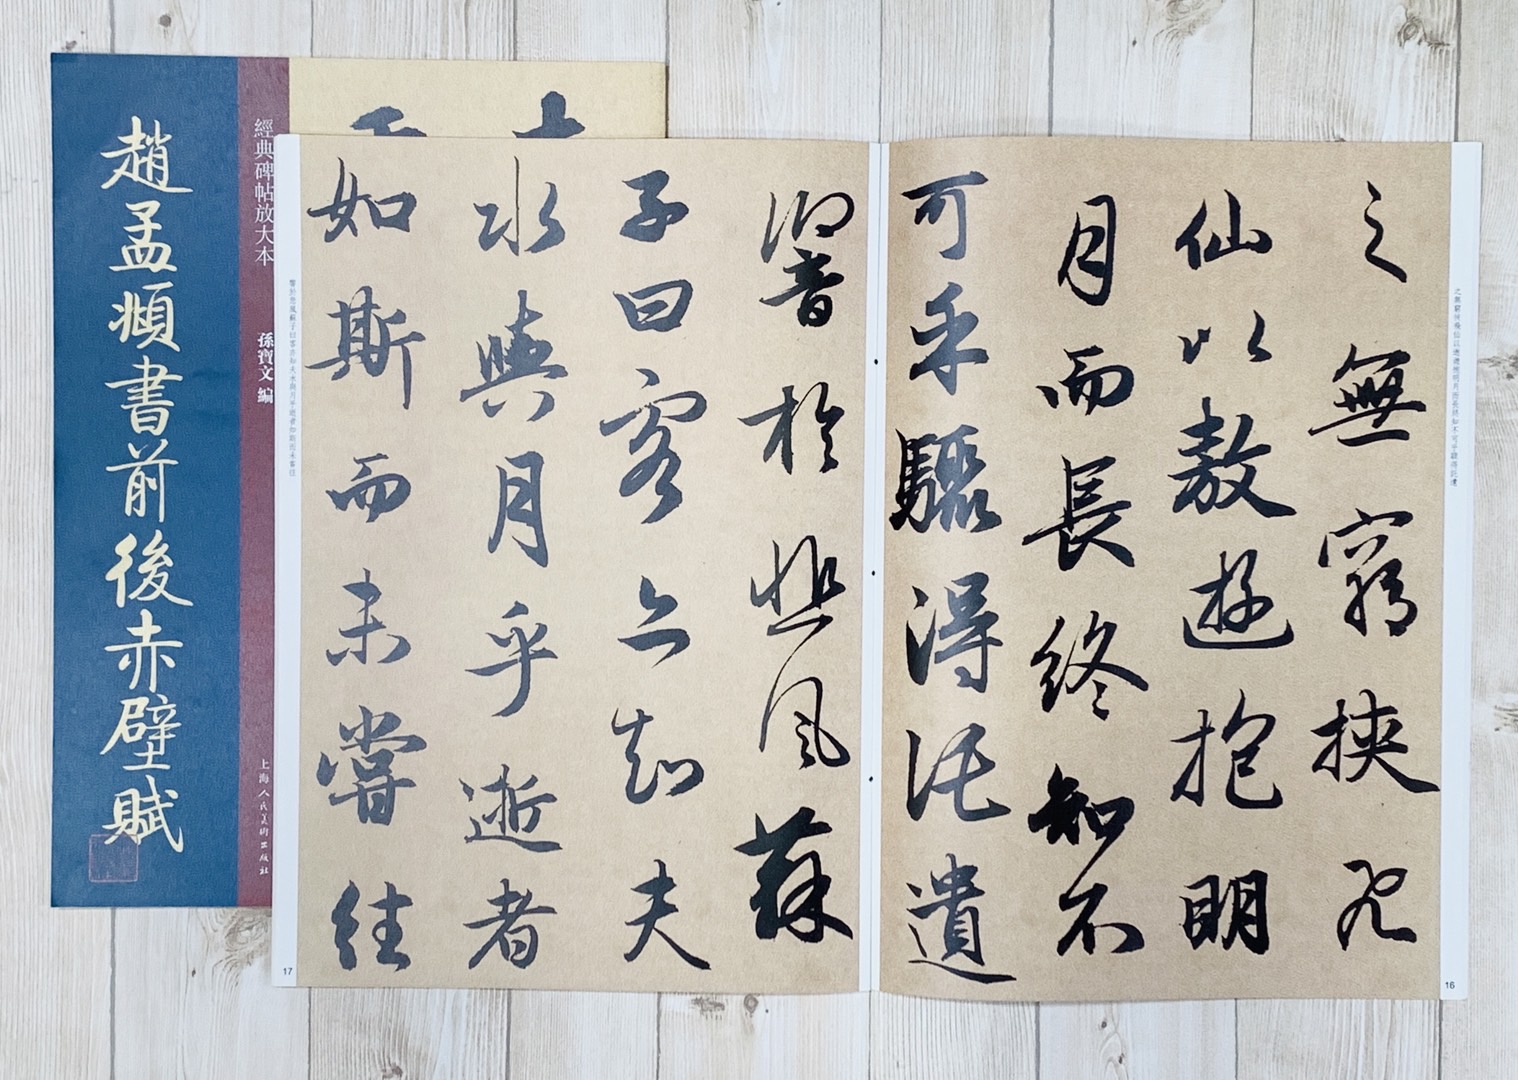 趙孟頫書前後赤壁賦
經典碑帖放大本
孫寶文 編
上海人民美術出版社
之無窮挾飛仙以遨遊抱明月而長終知不可乎驟得託遺
之無窮挾飛
仙以敖遊抱明
月而長終知不
可乎驟得託遺
16
響於悲風蘇
子曰客亦知夫
水與月乎逝者
如斯而未嘗往
響於悲風蘇子曰客亦知夫水與月乎逝者如斯而未嘗往
17